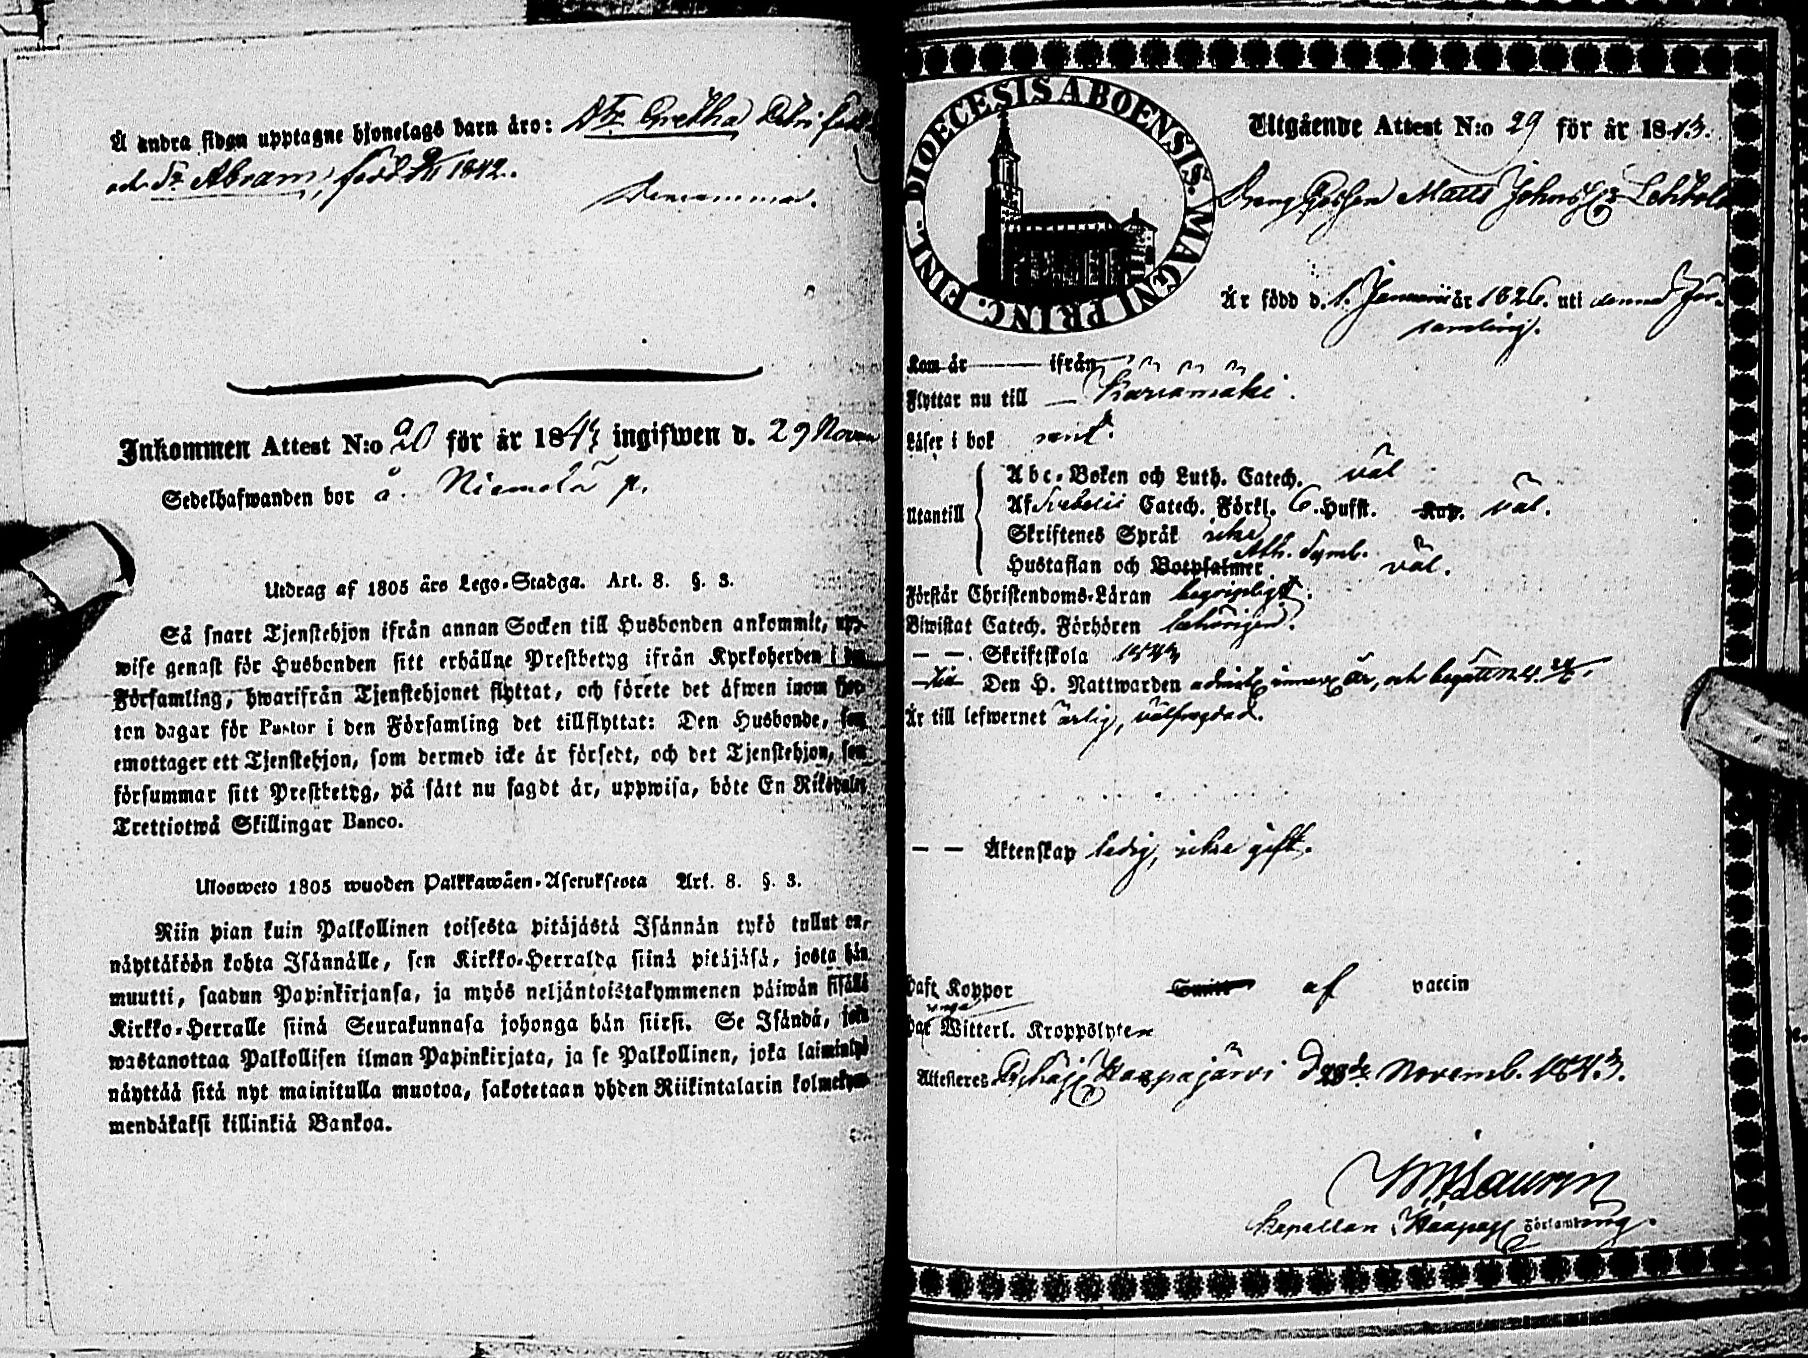 Å andra sidan upptagne hjonelags barn äro: Gretha
och Abram, född 1842.
Densamma.
Inkommen Attest N:o 20 för år 1843 ingifwen d. 29 Novem
Sedelhafwanden bor å. Niemelä p.
Utdrag af 1805 års Lego-Stadga. Art. 8. §. 3.
Så snart Tjenstehjon ifrån annan Socken till Husbonden ankommit, upp-
wise genast för Husbonden sitt erhållne Prestbetyg ifrån Kyrkoherden i den
Församling, hwarifrån Tjenstehjonet flyttat, och förete det äfwen inom fjor-
ton dagar för Pastor i den Församling det tillflyttat: Den Husbonde, som
emottager ett Tjenstehjon, som dermed icke är försedt, och det Tjenstehjon, som
försummar sitt Prestbetyg, på sätt nu sagdt är, uppwisa, böte En Riksdaler
Trettiotwå Skillingar Banco.
Ulosweto 1805 wuoden Palkkawäen-Asetuksesta Art. 8. §. 3.
Niin pian kuin Palkollinen toisesta pitäjästä Isännän tykö tullut on,
näyttäköön kohta Isännälle, sen Kirkko-Herralda siinä pitäjäsä, josta hän
muutti, saadun Papinkirjansa, ja myös neljäntoistakymmenen päiwän sisällä
Kirkko-Herralle siinä Seurakunnasa johonga hän siirsi. Se Isändä, joka
wastanottaa Palkollisen ilman Papinkirjata, ja se Palkollinen, joka laiminlyö
näyttää sitä nyt mainitulla muotoa, sakotetaan yhden Riikintalarin kolmekym-
mendäkaksi killinkiä Bankoa.
DIOECESIS ABOENSIS. MAGNI PRINC. FINL.
Utgående Attest N:o 29 för år 1843.
Drengpojken Matts Johnss
Är född d. 1. Januarii år 1826. uti denna För-
samling.
Kom år ifrån
Flyttar nu till Karvamäki.
Läser i bok rent.
Abc-Boken och Luth. Catech. väl
Utantill Af Svebelii Catech. Förkl. 6. Hufst. Kap. väl.
Skriftenes Språk icke
Hustaflan och Botpsalmer Ath. Symb. väl.
Förstår Christendoms-Läran begripligt.
Biwistat Catech. Förhören behörigen.
— — Skriftskola 1843
Den H. Nattwarden och begått
Är till lefwernet ärlig, välfregdad.
— — Äktenskap ledig, icke gift.
Haft Koppor Smitt af vaccin
Har Witterl. Kroppslyten inga
Attesteres Kyhäjj Haapajärvi d. 28de Novemb. 1843.
Laurin
Kapellan i Haapaj Församling.